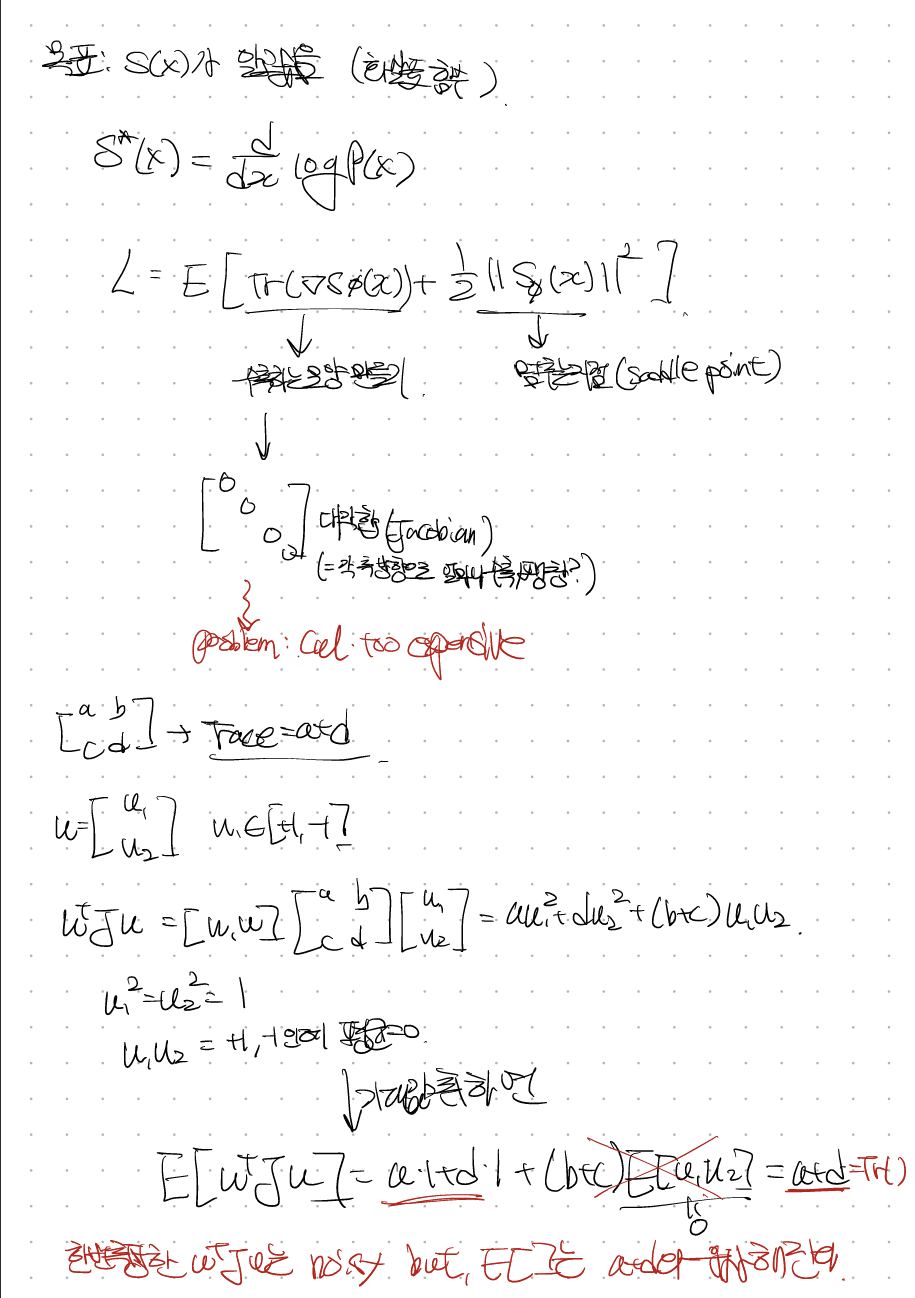 목표: S(x)가 (화살표 함수)
S*(x) = d/dx log P(x)
L = E[Tr(∇Sφ(x)) + 1/2 ||Sφ(x)||²]
수축하는 모양 만들기. 멈출지점(saddle point)
대각합 (Jacobian)
(=각 축방향으로 얼마나 수축, 팽창?)
problem: Cal. too expensive
[a b; c d] → Trace=a+d
u=[u₁; u₂] u₁∈[+1,-1]
uᵀJu = [u₁u₂][a b; c d][u₁; u₂] = au₁²+du₂²+(b+c)u₁u₂.
u₁²=u₂²=1
u₁u₂ = +1,-1인데 평균=0.
기댓값 취하면
E[uᵀJu] = a·1+d·1+(b+c)E[u₁u₂] = a+d=Tr()
0
한번 측정한 uᵀJu는 noisy but, E[]는 a+d에 유사해진다.